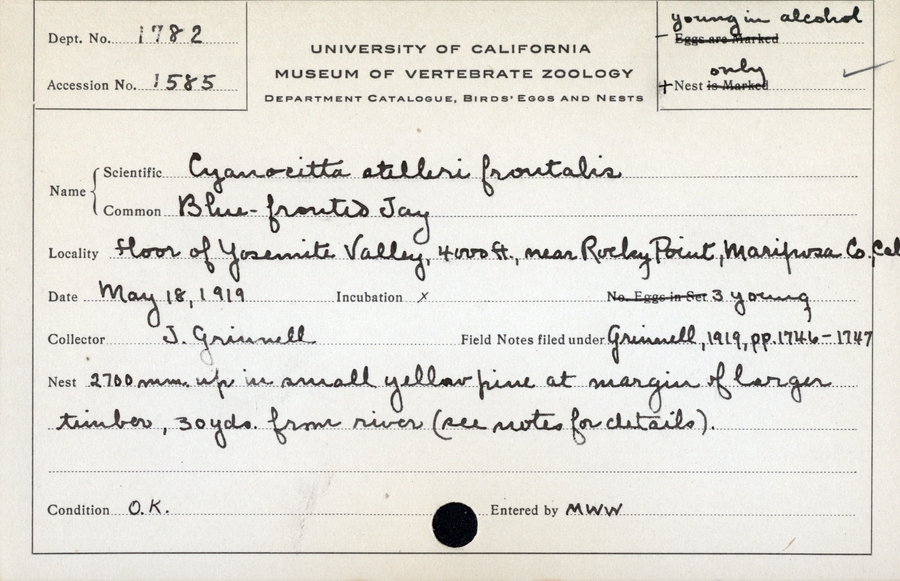 Dept. No. 1782
Accession No. 1585
UNIVERSITY OF CALIFORNIA
MUSEUM OF VERTEBRATE ZOOLOGY
DEPARTMENT CATALOGUE, BIRDS' EGGS AND NESTS
young in alcohol
- Eggs are Marked
only
+ Nest is Marked ✓
Name
Scientific Cyanocitta stelleri frontalis
Common Blue-fronted Jay
Locality floor of Yosemite Valley, 4000 ft., near Rocky Point, Mariposa Co. Cal
Date May 18, 1919 Incubation x No. Eggs in Set 3 young
Collector J. Grinnell Field Notes filed under Grinnell, 1919, pp. 1746-1747
Nest 2700 mm. up in small yellow pine at margin of larger
timber, 30 yds. from river (see notes for details).
Condition O.K. Entered by MWW